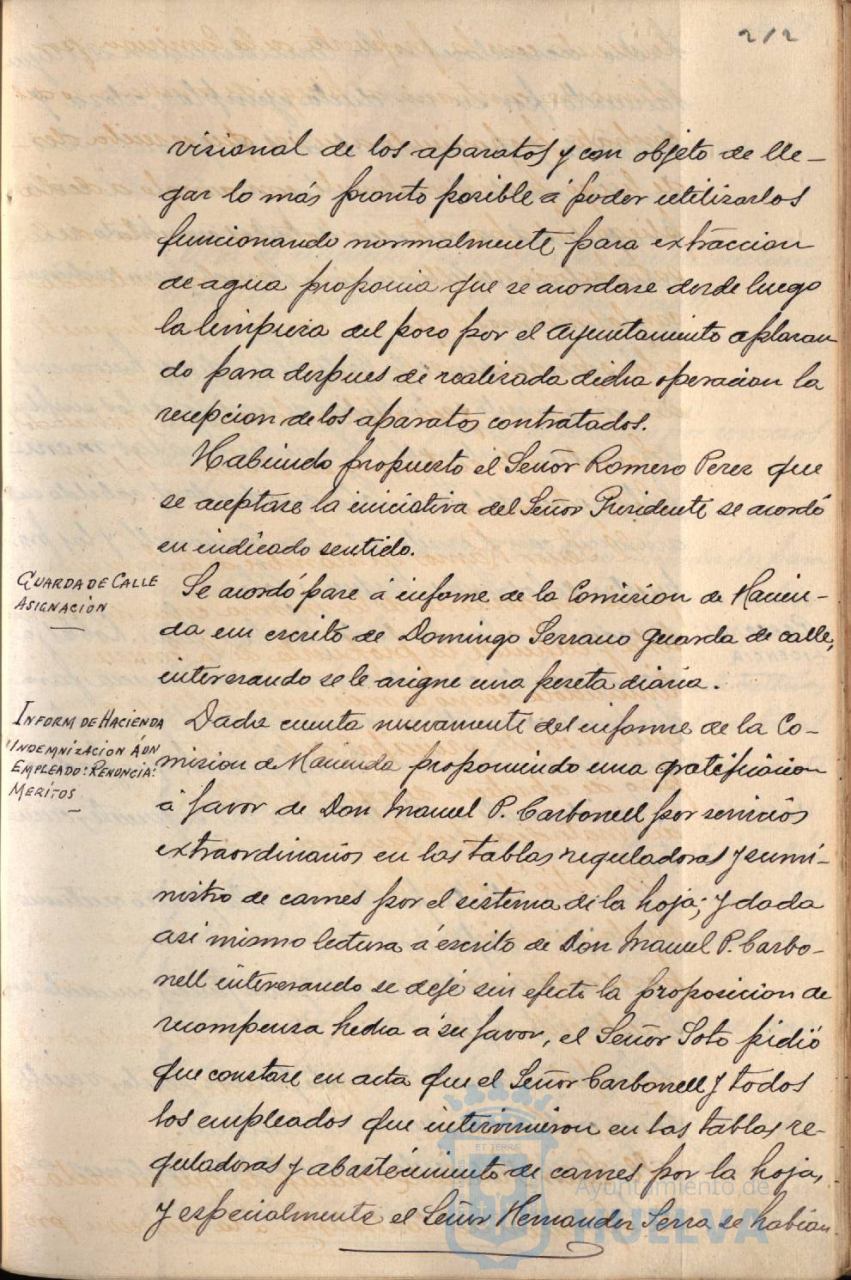 212
visional de los aparatos y con objeto de lle-
gar lo más pronto posible á poder utilizarlos
funcionando normalmente para extraccion
de agua proponia que se acordase desde luego
la limpieza del pozo por el Ayuntamiento aplazan
do para despues de realizada dicha operacion la
recepcion de los aparatos contratados.
Habiendo propuesto el Señor Romero Perez que
se aceptase la iniciativa del Señor Presidente se acordó
en indicado sentido.
GUARDA DE CALLE
ASIGNACIÓN
Se acordó pase á informe de la Comision de Hacien-
da un escrito de Domingo Serrano guarda de calle,
interesando se le asigne una peseta diaria.
INFORM DE HACIENDA
INDEMNIZACION Á UN
EMPLEADO: RENUNCIA:
MERITOS
Dada cuenta nuevamente del informe de la Co-
mision de Hacienda proponiendo una gratificacion
á favor de Don Manuel P. Carbonell por servicios
extraordinarios en las tablas reguladoras y sumi-
nistro de carnes por el sistema de la hoja; y dada
asi mismo lectura á escrito de Don Manuel P. Carbo-
nell interesando se deje sin efecto la proposicion de
recompensa hecha á su favor, el Señor Soto pidió
que constase en acta que el Señor Carbonell y todos
los empleados que intervinieron en las tablas re-
guladoras y abastecimiento de carnes por la hoja,
y especialmente el Señor Hernandez Serra se habian
ET TERRÆ
Ayuntamiento de
HUELVA